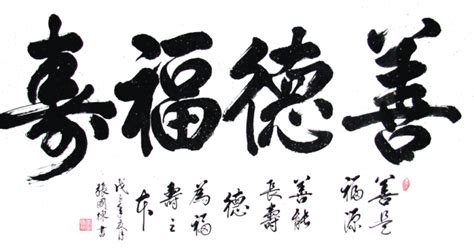 善德福寿
善是
福源
善能
長壽
德
為福
壽之
本
戊子年
張國棟書